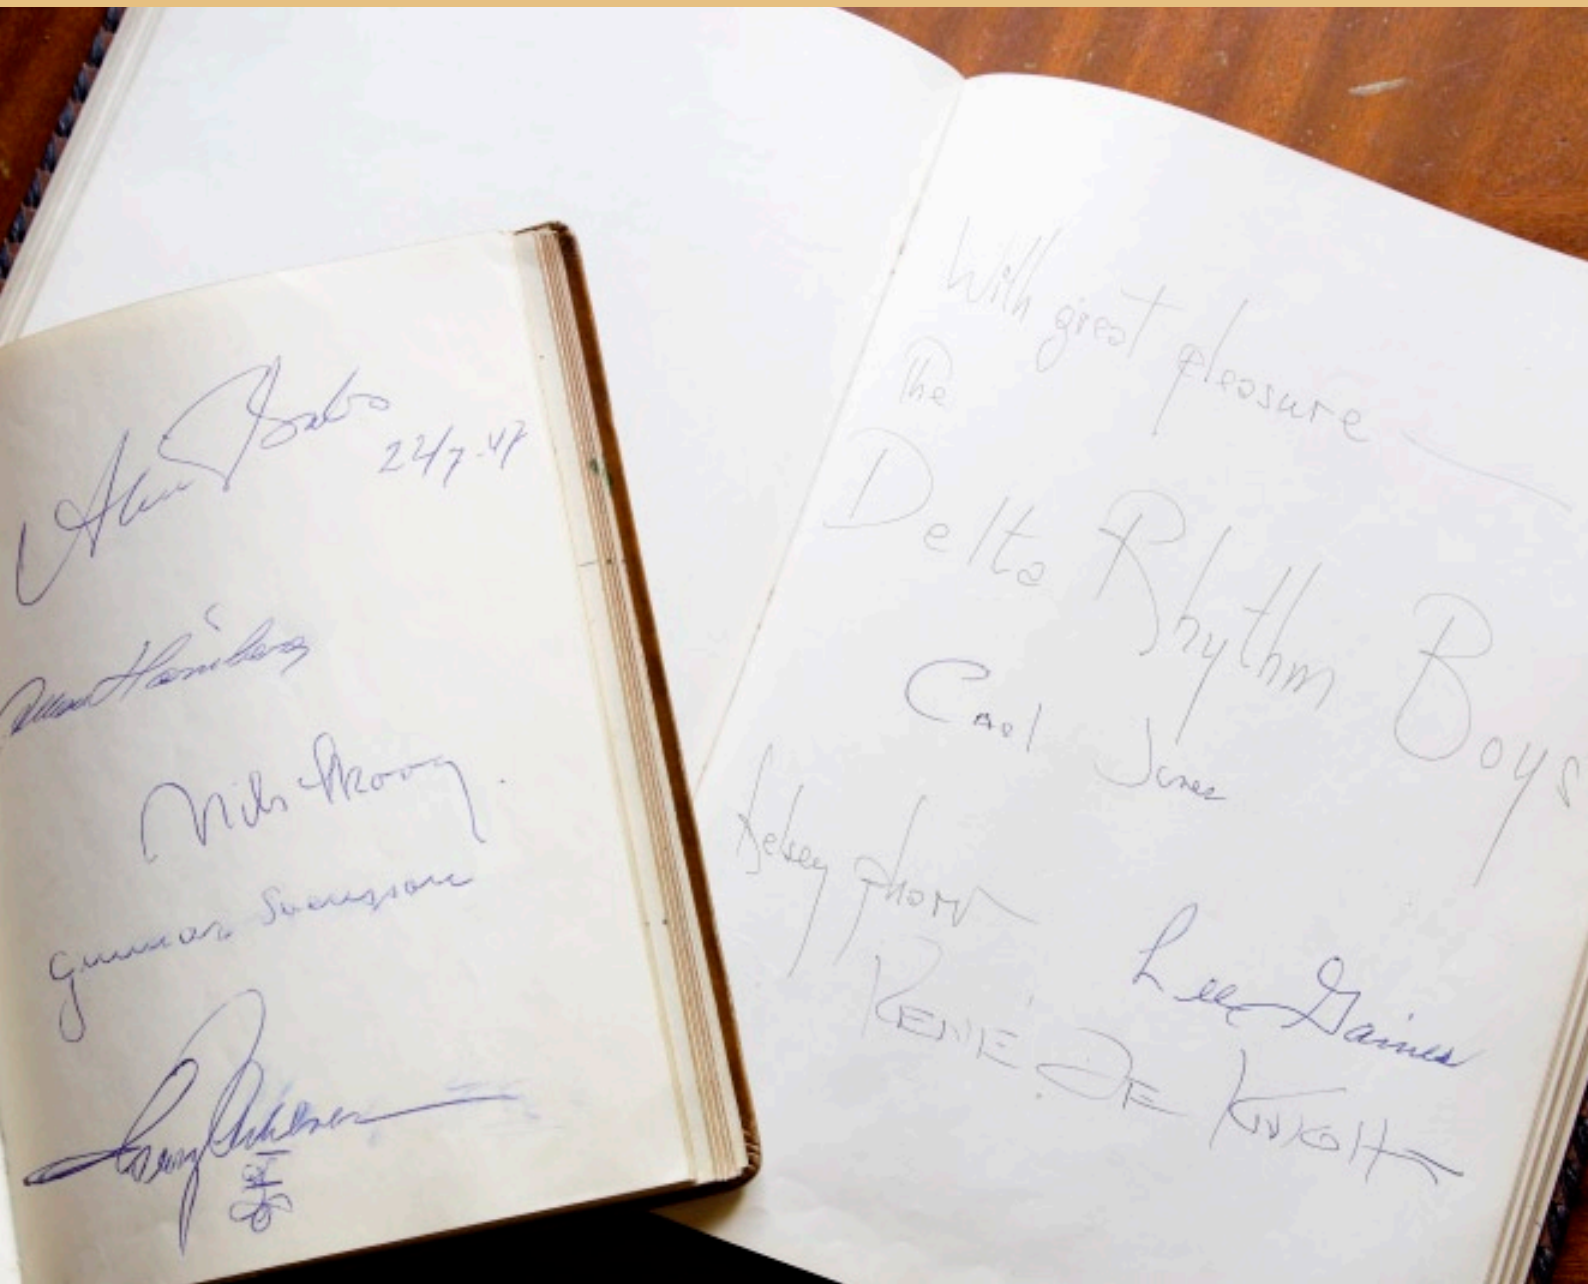 Alice Babs
22/7-47
Nils Skoog.
Gunnar Svensson
With great pleasure
The
Delta Rhythm Boys
Carl Jones
Kelsey Pharr
Lee Gaines
RENÉ DE KNIGHT